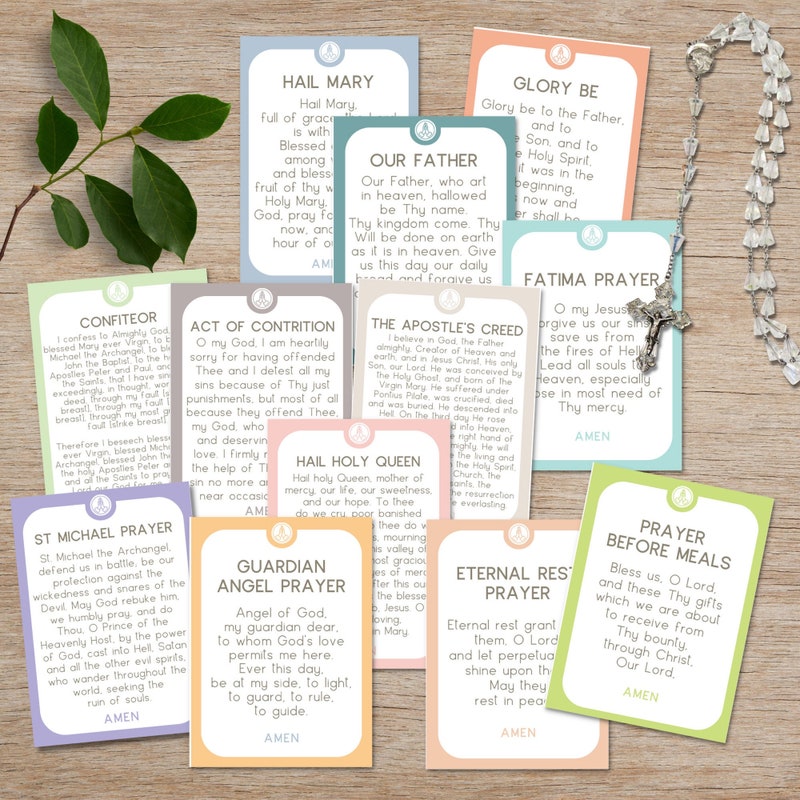 HAIL MARY
Hail Mary,
full of grace, the Lord
is with
Blessed
among
and bless
fruit of thy w
Holy Mary,
God, pray f
now, an
hour of ou
AM
GLORY BE
Glory be to the Father,
and to
Son, and to
Holy Spirit,
it was in the
beginning,
now and
er shall be
OUR FATHER
Our Father, who art
in heaven, hallowed
be Thy name.
Thy kingdom come. Thy
Will be done on earth
as it is in heaven. Give
us this day our daily
bread and forgive us
FATIMA PRAYER
O my Jesus
forgive us our sins
save us from
the fires of Hell
Lead all souls t
Heaven, especially
those in most need of
Thy mercy.
AMEN
CONFITEOR
I confess to Almighty God,
blessed Mary ever Virgin, to b
Michael the Archangel, to bles
John the Baptist, to the ho
Apostles Peter and Paul, and
the Saints, that I have sin
exceedingly, in thought, wor
deed, through my fault [s
breast], through my fault
breast], through my most gr
fault [strike breast]
Therefore I beseech blesse
ever Virgin, blessed Mich
Archangel, blessed John the
the holy Apostles Peter a
and all the Saints to pray
Lord our God for me
ACT OF CONTRITION
O my God, I am heartily
sorry for having offended
Thee and I detest all my
sins because of Thy just
punishments, but most of
all because they offend Thee,
my God, who
and deservin
love. I firmly r
the help of T
sin no more an
near occasio
AM
THE APOSTLE'S CREED
I believe in God, the Father
almighty, Creator of Heaven and
earth, and in Jesus Christ, His only
Son, our Lord. He was conceived by
the Holy Ghost, and born of the
Virgin Mary. He suffered under
Pontius Pilate, was crucified, died
and was buried. He descended into
Hell. On the third day He rose
into Heaven,
right hand of
almighty. He will
the living and
the Holy Spirit,
Church, the
Saints, the
resurrection
everlasting.
HAIL HOLY QUEEN
Hail holy Queen, mother of
mercy, our life, our sweetness,
and our hope. To thee
do we cry, poor banished
thee do w
mourning
valley of
most gracio
eyes of mer
after this ou
the bless
b, Jesus. O
loving,
in Mary.
ST MICHAEL PRAYER
St. Michael the Archangel,
defend us in battle, be our
protection against the
wickedness and snares of the
Devil. May God rebuke him,
we humbly pray, and do
Thou, O Prince of the
Heavenly Host, by the power
of God, cast into Hell, Satan
and all the other evil spirits,
who wander throughout the
world, seeking the
ruin of souls.
AMEN
GUARDIAN
ANGEL PRAYER
Angel of God,
my guardian dear,
to whom God's love
permits me here.
Ever this day,
be at my side, to light,
to guard, to rule,
to guide.
AMEN
ETERNAL REST
PRAYER
Eternal rest grant
them, O Lord
and let perpetua
shine upon th
May they
rest in peac
AMEN
PRAYER
BEFORE MEALS
Bless us, O Lord,
and these Thy gifts
which we are about
to receive from
Thy bounty,
through Christ,
Our Lord,
AMEN